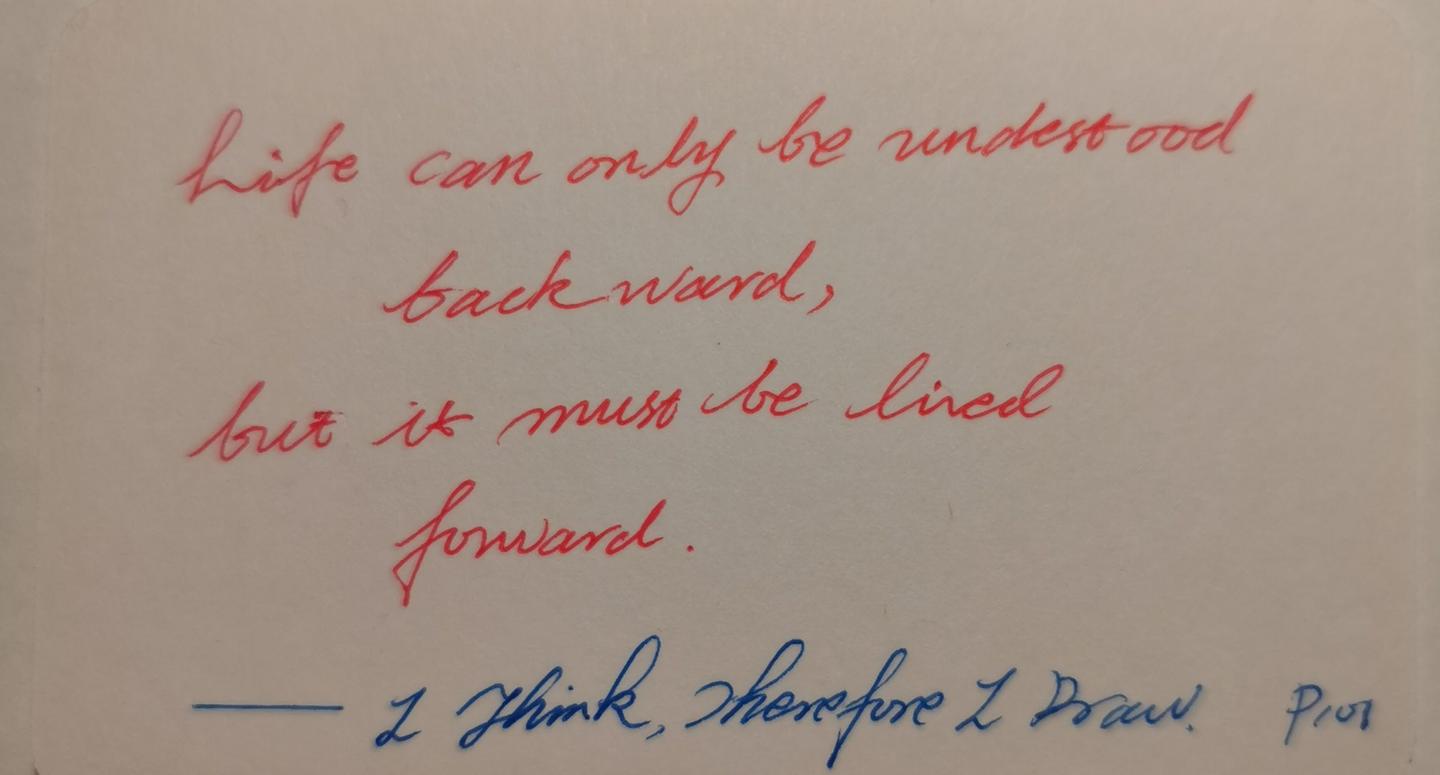 Life can only be undestood
backward,
but it must be lived
forward.
—— I Think, Therefore I Draw. P101